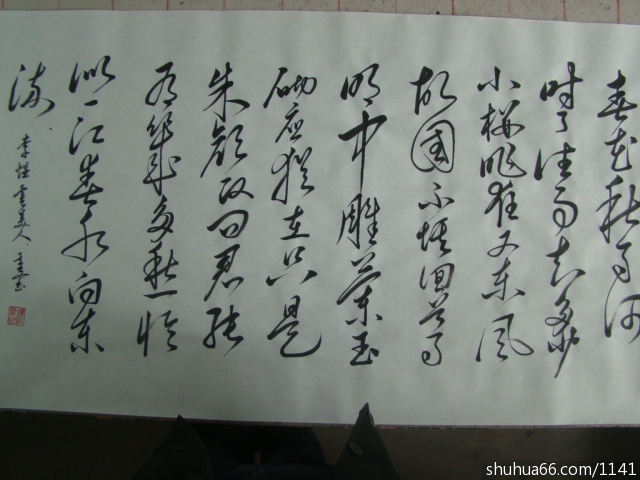 春花秋月何
時了往事知多少
小樓昨夜又東風
故國不堪回首月
明中雕蘭玉
砌應猶在只是
朱顏改問君能
有幾多愁恰
似一江春水向東
流
李煜虞美人
shuhua66.com/1141